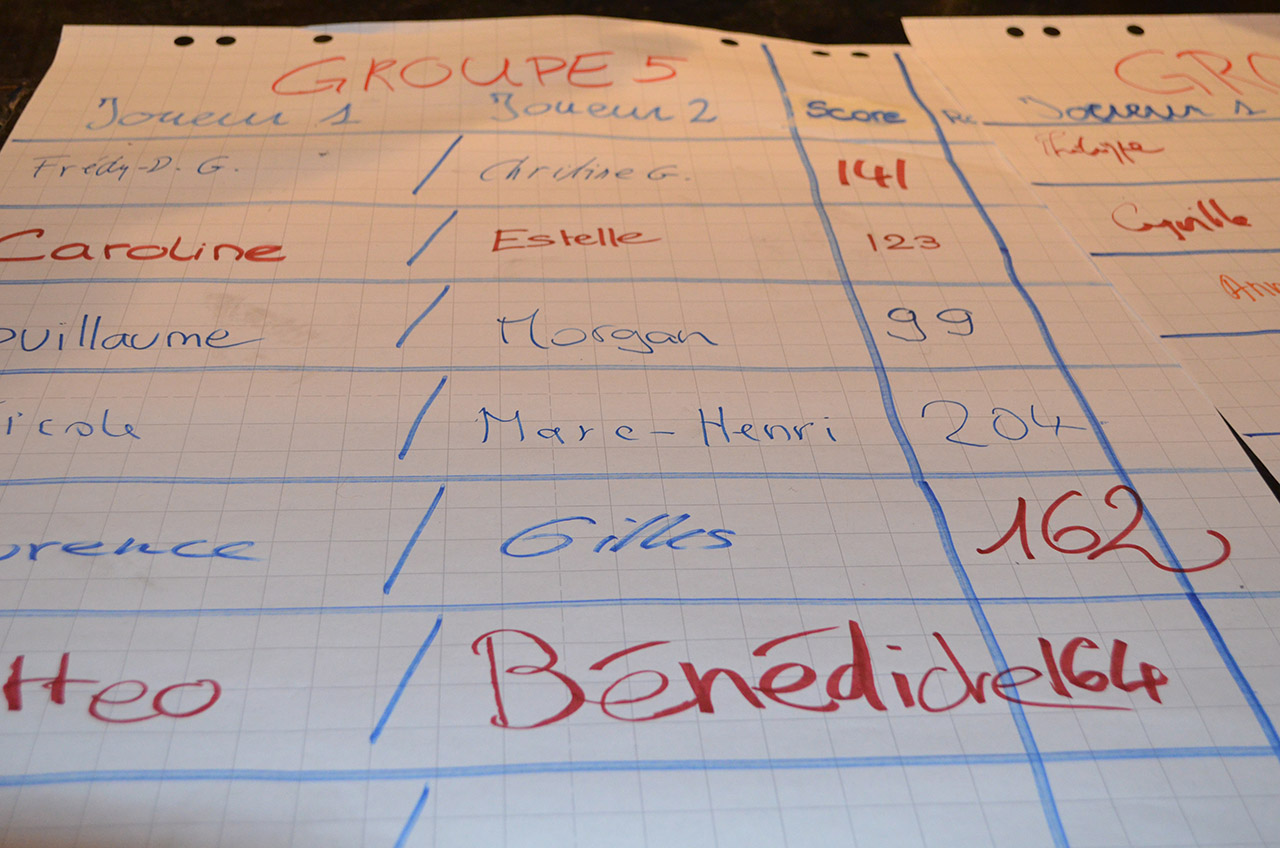 GROUPE 5
Joueur 1 Joueur 2 Score
Frédy-D. G. / Christine G. 141
Caroline / Estelle 123
ouillaume / Morgan 99
icole / Marc-Henri 204
orence / Gilles 162
tteo / Bénédicte 164
/
GRO
Joueur 1
Philippe
Ann